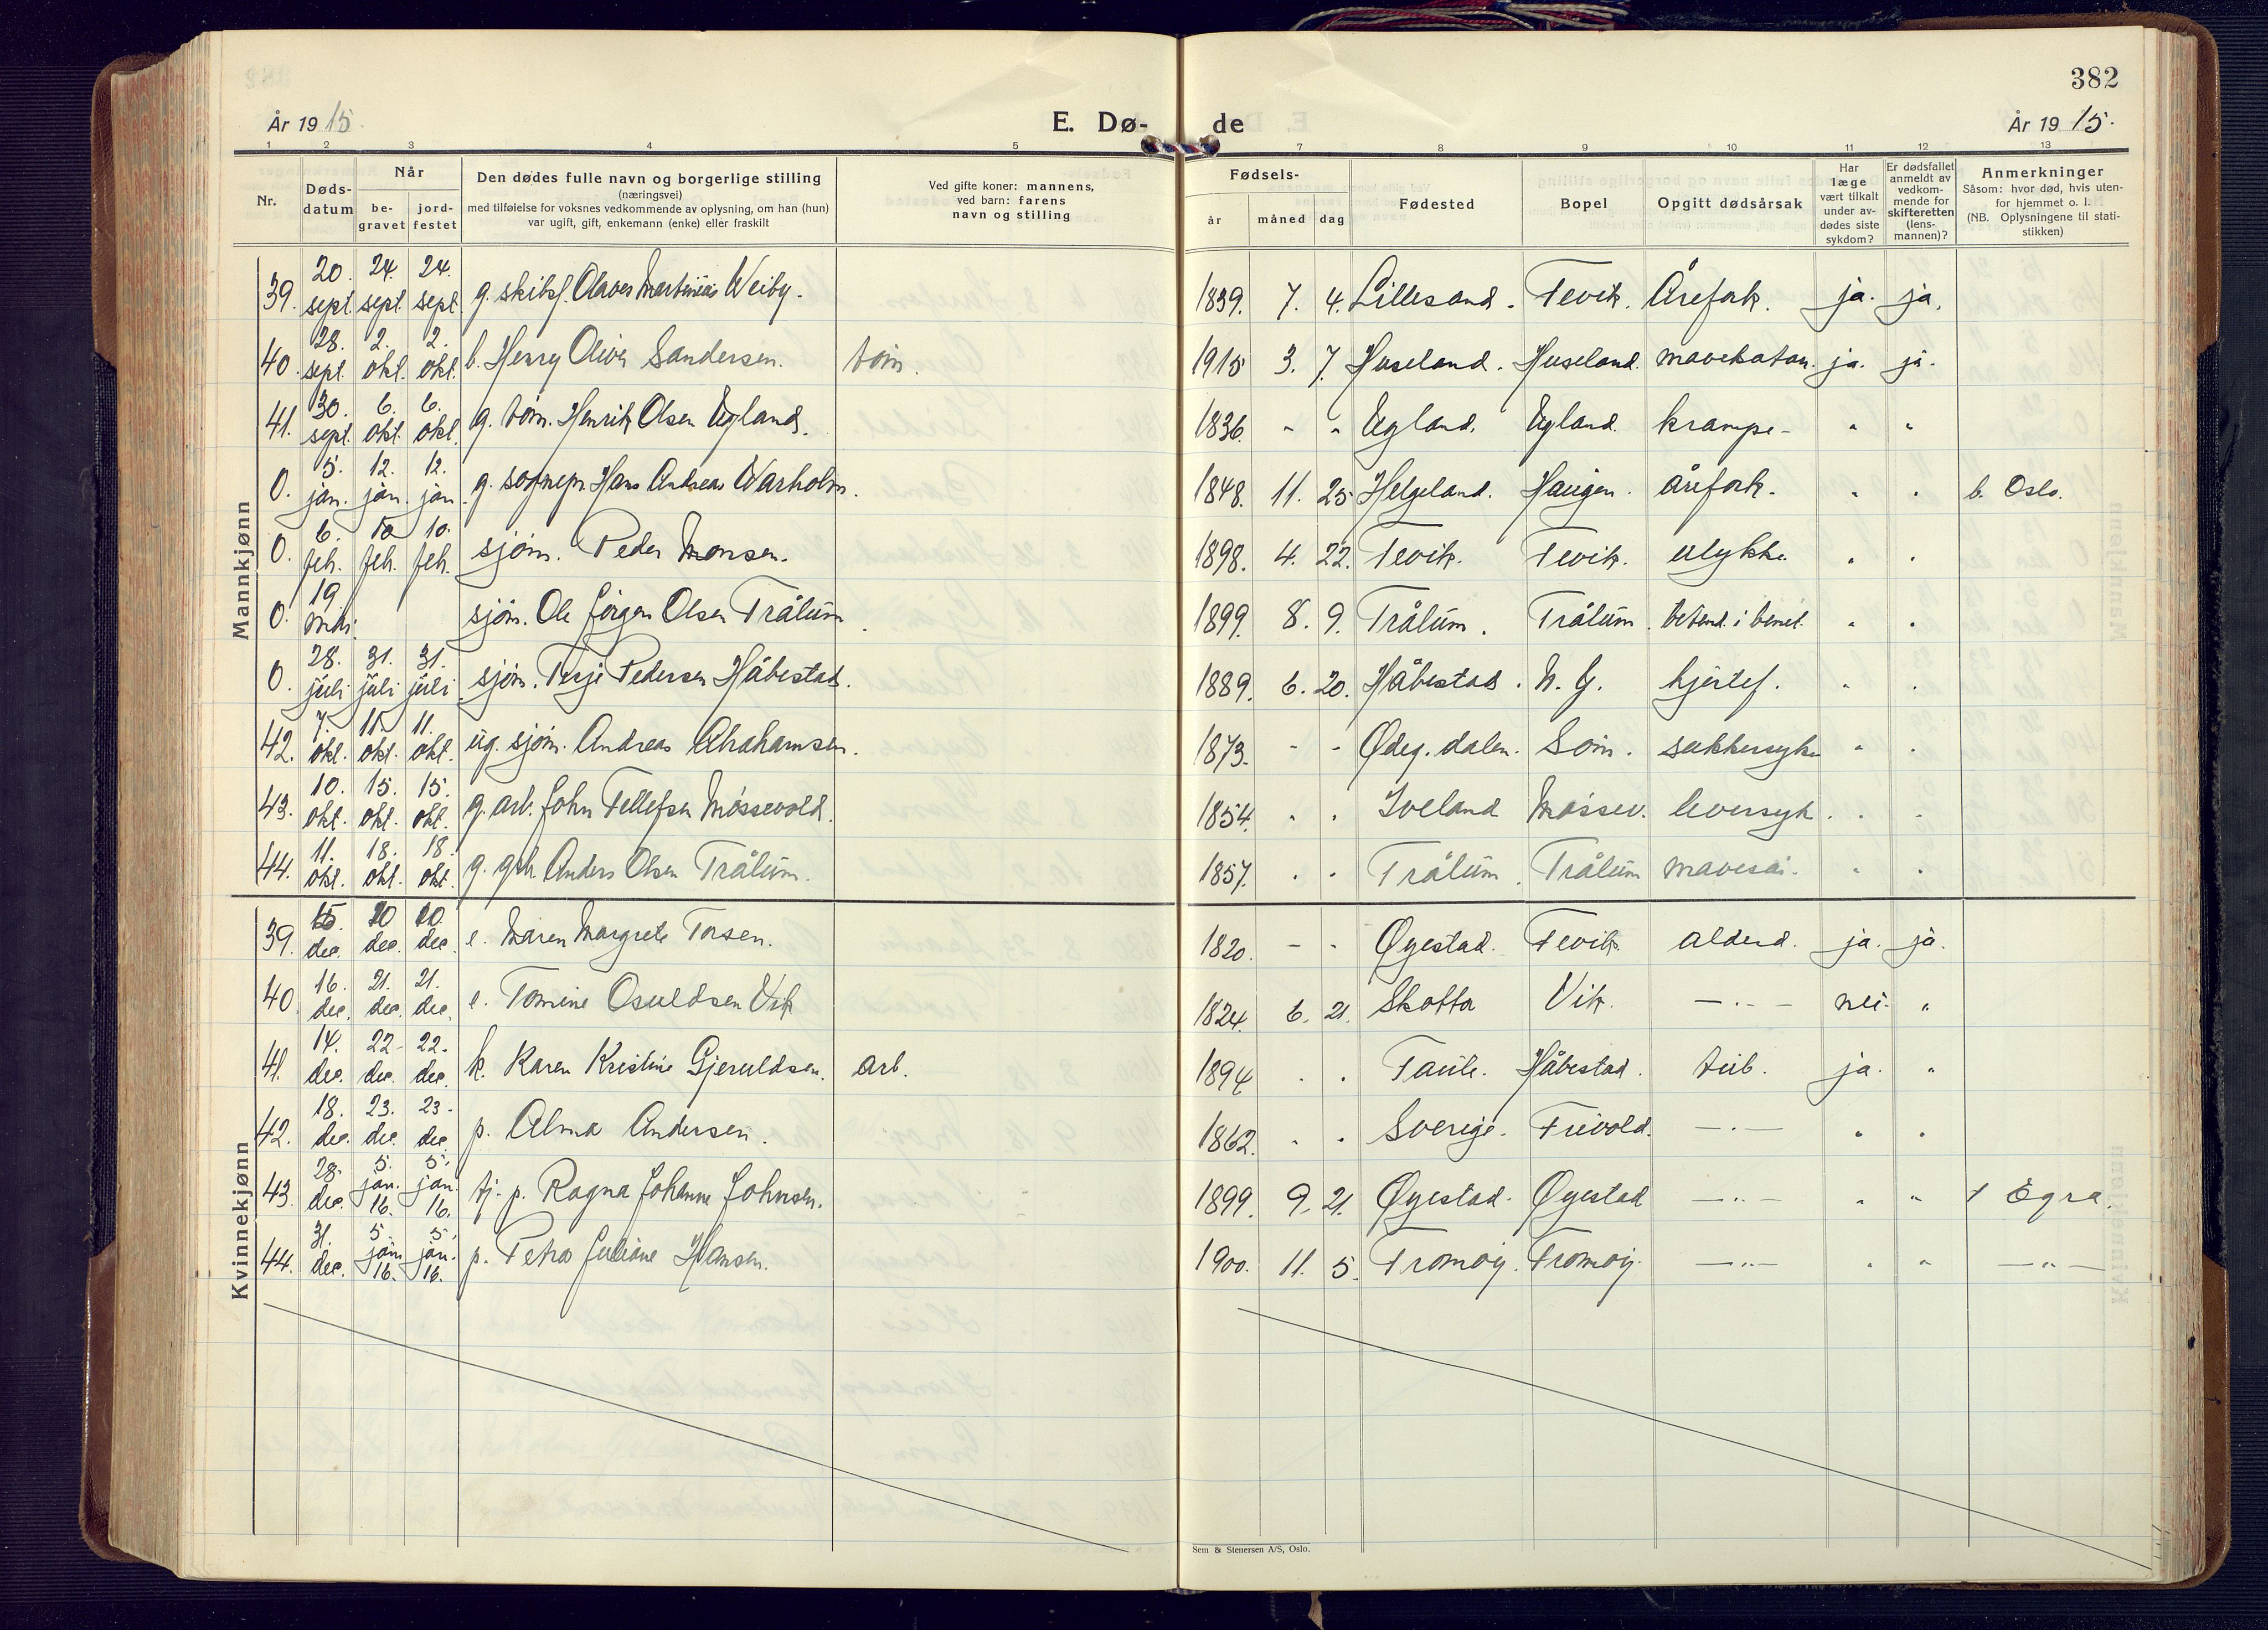 382
År 1915. E. Dø- de År 1915.
1 2 3 4 5 7 8 9 10 11 12 13
Nr. Døds-datum Når be-gravet jord-festet Den dødes fulle navn og borgerlige stilling (næringsvei) med tilføielse for voksnes vedkommende av oplysning, om han (hun) var ugift, gift, enkemann (enke) eller fraskilt Ved gifte koner: mannens, ved barn: farens navn og stilling Fødsels- år måned dag Fødested Bopel Opgitt dødsårsak Har læge vært tilkalt under av-dødes siste sykdom? Er dødsfallet anmeldt av vedkom-mende for skifteretten (lens-mannen)? Anmerkninger Såsom: hvor død, hvis uten-for hjemmet o. l. (NB. Oplysningene til stati-stikken)
Mannkjønn
39. 20. sept. 24. sept. 24. sept. g. skibsf. Olaves Martinius Weiby. 1839. 7. 4. Lillesand. Fevik. Årefork. ja. ja.
40. 28. sept. 2. okt. 2. okt. b. Henry Oliver Sandersen. tøm. 1915 3. 7. Huseland. Huseland. mavekatarr. ja. ja.
41. 30. sept. 6. okt. 6. okt. g. tøm. Henrik Olsen Ugland. 1836. - - Ugland. Ugland. krampe - " "
0. 5. jan. 12. jan. 12. jan. g. sognepr. Hans Andreas Warholm. 1848. 11. 25. Helgeland. Haugen. årefork. " " b. Oslo.
0. 6. feb. 10 feb. 10. feb. sjøm. Peder Monsen. 1898. 4. 22. Fevik. Fevik. ulykke " "
0. 19 mai. sjøm. Ole Jørgen Olsen Trålum. 1899. 8. 9. Trålum. Trålum. betend. i benet. " "
0. 28. juli 31. juli 31. juli sjøm. Terje Pedersen Håbestad. 1889. 6. 20. Håbestad. N. Y. hjertef. " "
42. 7. okt. 11. okt. 11. okt. ug. sjøm. Andreas Abrahamsen. 1873. - - Ødeg. dalen. Søm. sukkersyke " "
43. 10. okt. 15. okt. 15. okt. g. arb. John Tellefsen Møssevold. 1854. " " Iveland Møssev. leversyk. " "
44. 11. okt. 18. okt. 18. okt. g. gbr. Anders Olsen Trålum. 1857. " " Trålum. Trålum mavesår. " "
Kvinnekjønn
39. 15. dec. 20 dec. 20. dec. e. Maren Margrete Torsen. 1820. - - Øyestad. Fevik. alderd. ja. ja.
40. 16. dec. 21. dec. 21. dec. e. Tomine Osuldsen Vik 1824. 6. 21. Skotta Vik. — " — nei. "
41. 14. dec. 22. dec. 22. dec. k. Karen Kristine Gjeruldsen. arb. 1894 " " Taule. Håbestad. tub. ja. "
42. 18. dec. 23. dec. 23. dec. p. Alma Andersen. 1862. " " Sverige. Frivold. — " — " "
43. 28. dec. 5. jan. 16. 5. jan. 16. tj. p. Ragna Johanne Johnsen. 1899. 9. 21. Øyestad. Øyestad — " — " " † Egra.
44. 31. dec. 5. jan. 16. 5. jan. 16. p. Petra Juliane Hansen. 1900. 11. 5. Tromøy. Tromøy. — " — " " — " —
Sem & Stenersen A/S, Oslo.